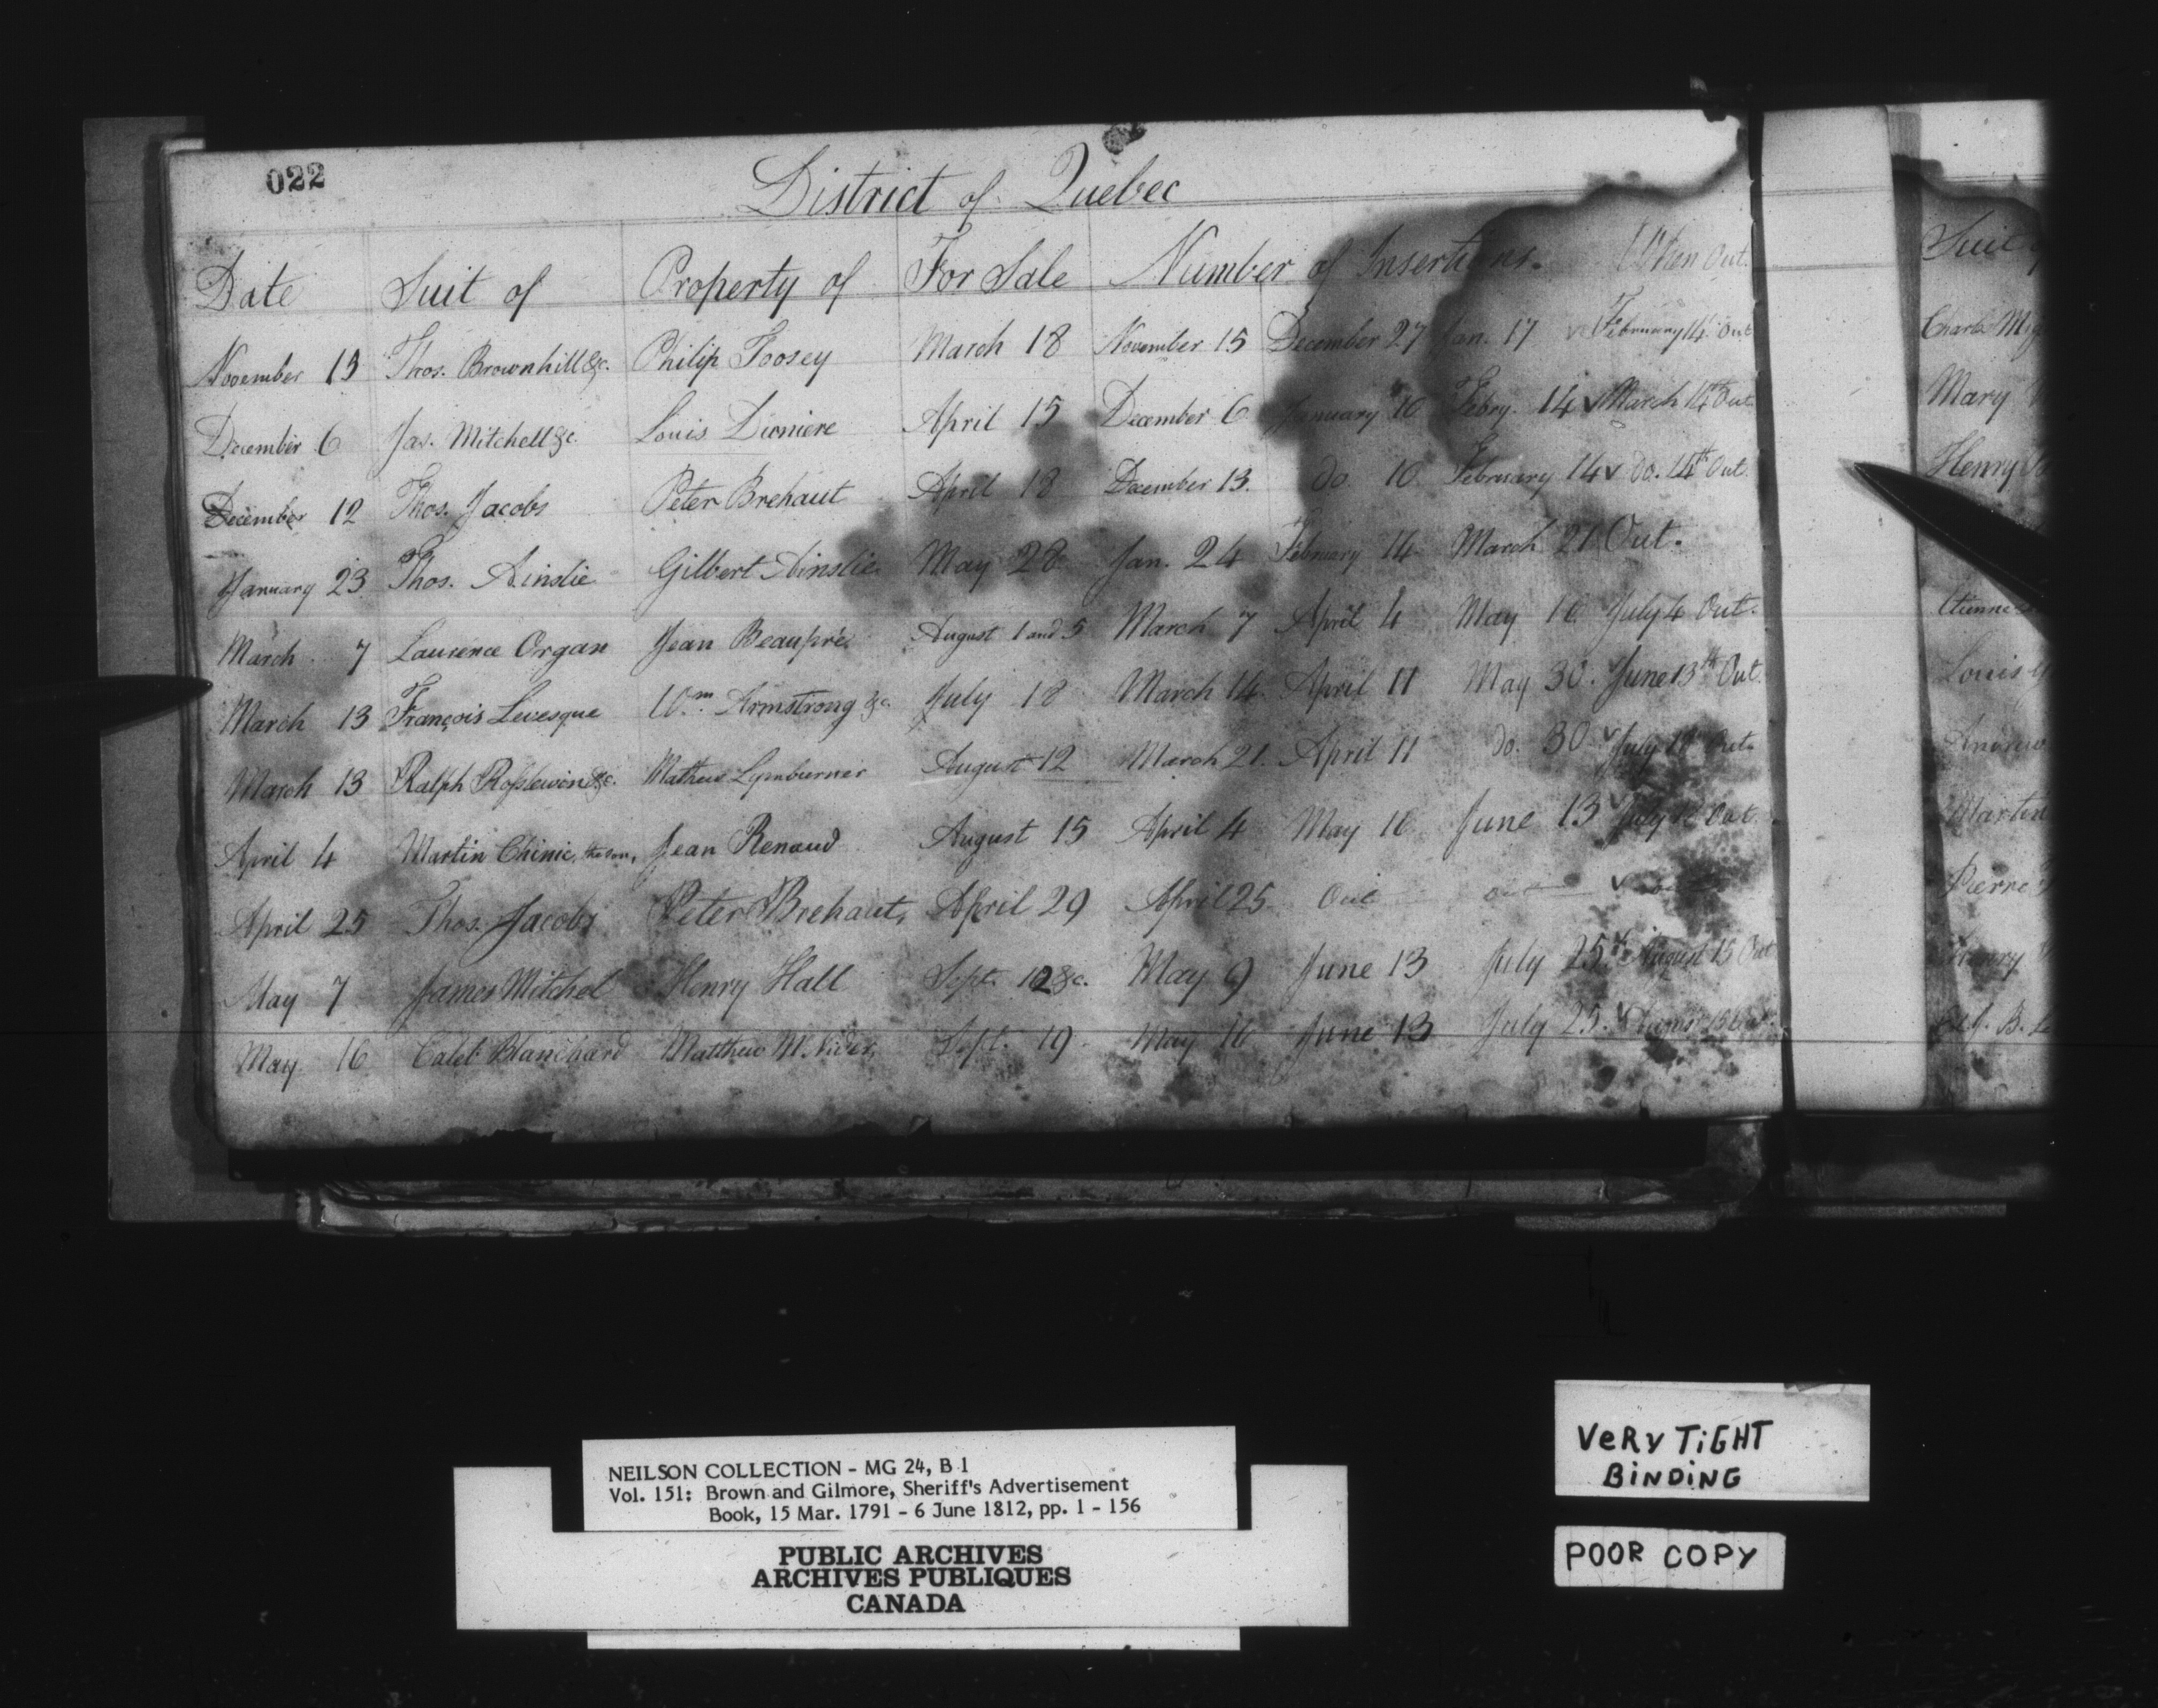 022
District of Quebec
Date Suit of Property of For Sale Number of Insertions. When Out.
November 13 Thos. Brownhill &c. Philip Toosey March 18 November 15 December 27 Jan. 17 February 14 Out
December 6 Jas. Mitchell &c. Louis Dirniere April 15 December 6 January 10 Febry. 14 March 14th Out
December 12 Thos. Jacobs Peter Brehaut April 18 December 13. do. 10 February 14 do. 14th Out.
January 23 Thos. Ainslie Gilbert Ainslie May 28 Jan. 24 February 14 March 21 Out.
March 7 Laurence Organ Jean Beaupré August 1 and 5 March 7 April 4 May 16 July 4 Out.
March 13 François Levesque Wm. Armstrong &c. July 18 March 14 April 11 May 30. June 13th Out.
March 13 Ralph &c. Mathew Lymburner August 12 March 21. April 11 do. 30 July Out.
April 4 Martin Chinic, the son, Jean Renaud August 15 April 4 May 16 June 13 July Out
April 25 Thos. Jacobs Peter Brehaut, April 29 April 25 Out out
May 7 James Mitchel Henry Hall Sept. 12 &c. May 9 June 13 July 25. August 15 Out
May 16 Caleb Blanchard Matthew McNider, Sept. 19. May 16 June 13 July 25.
Suit
Mary
Henry
Louis
Andrew
Martin
Pierre
VERY TIGHT
BINDING
POOR COPY
NEILSON COLLECTION - MG 24, B 1
Vol. 151: Brown and Gilmore, Sheriff's Advertisement
Book, 15 Mar. 1791 - 6 June 1812, pp. 1 - 156
PUBLIC ARCHIVES
ARCHIVES PUBLIQUES
CANADA